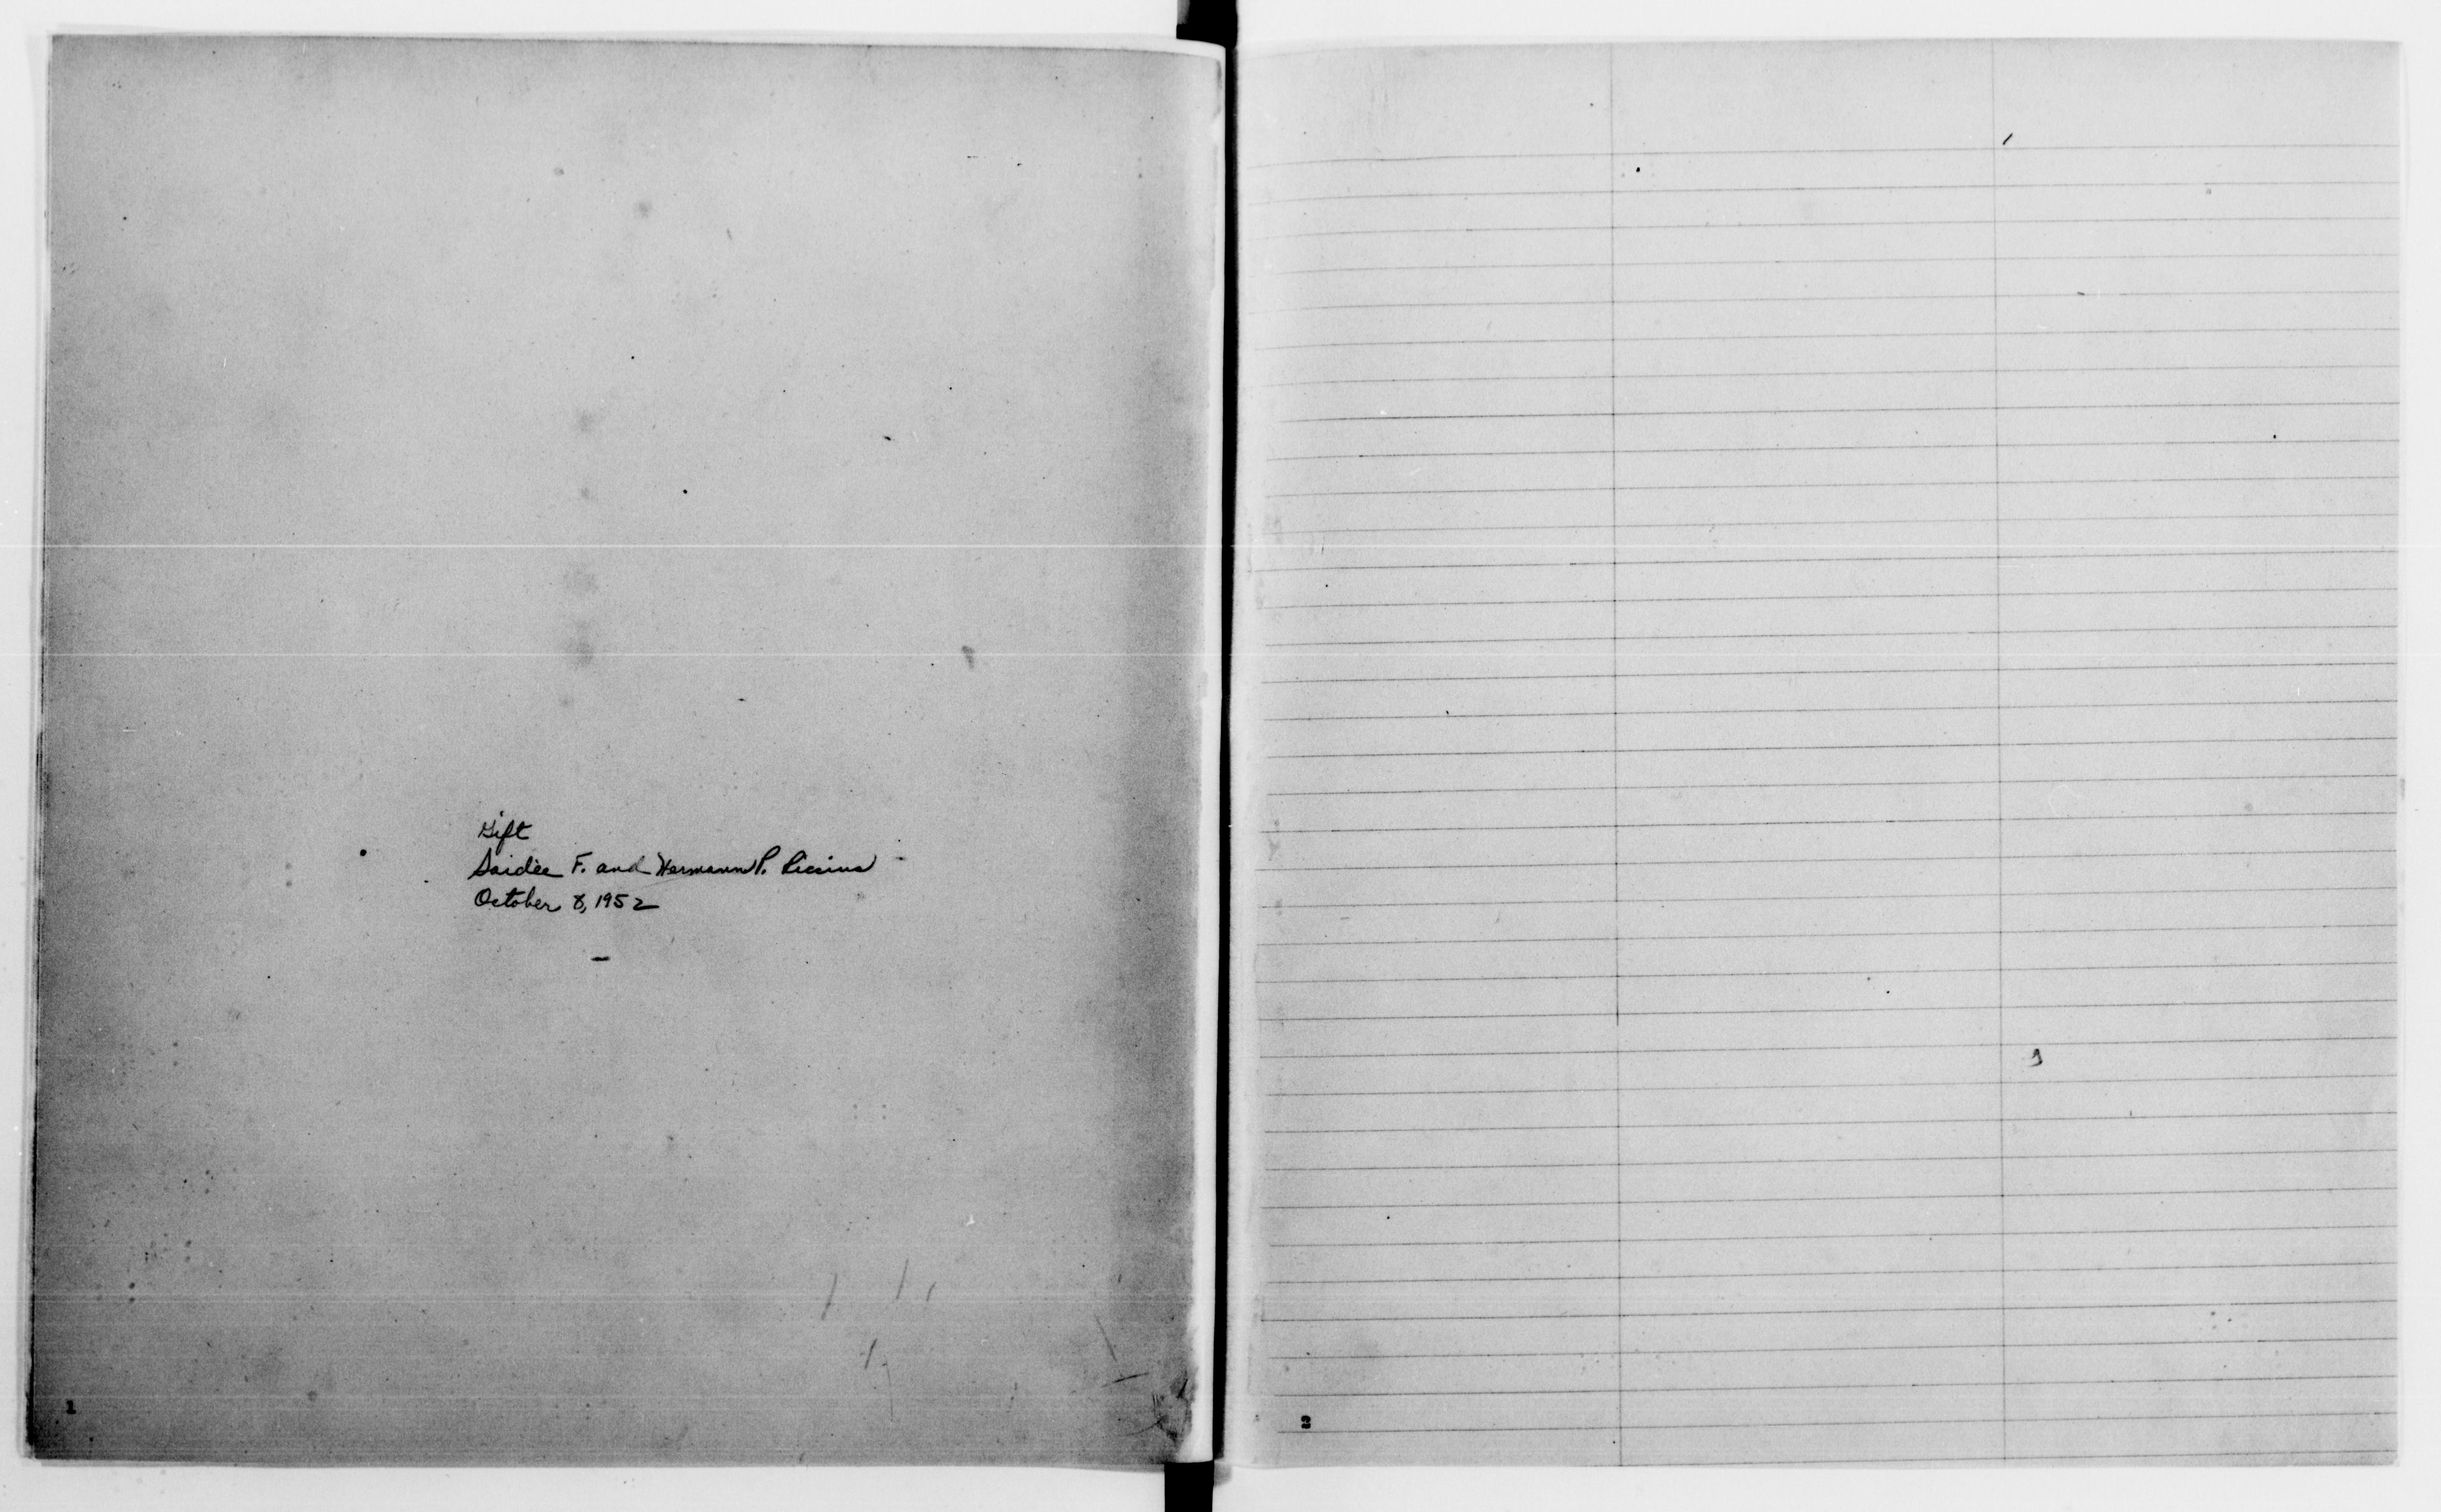 Gift
Saidée F. and Hermann P. Riccius
October 8, 1952
1
2